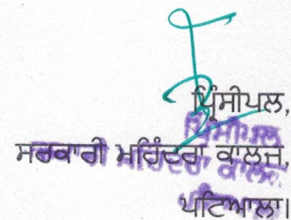 ਪ੍ਰਿੰਸੀਪਲ,
ਸਰਕਾਰੀ ਮਹਿੰਦਰਾ ਕਾਲਜ,
ਪਟਿਆਲਾ।